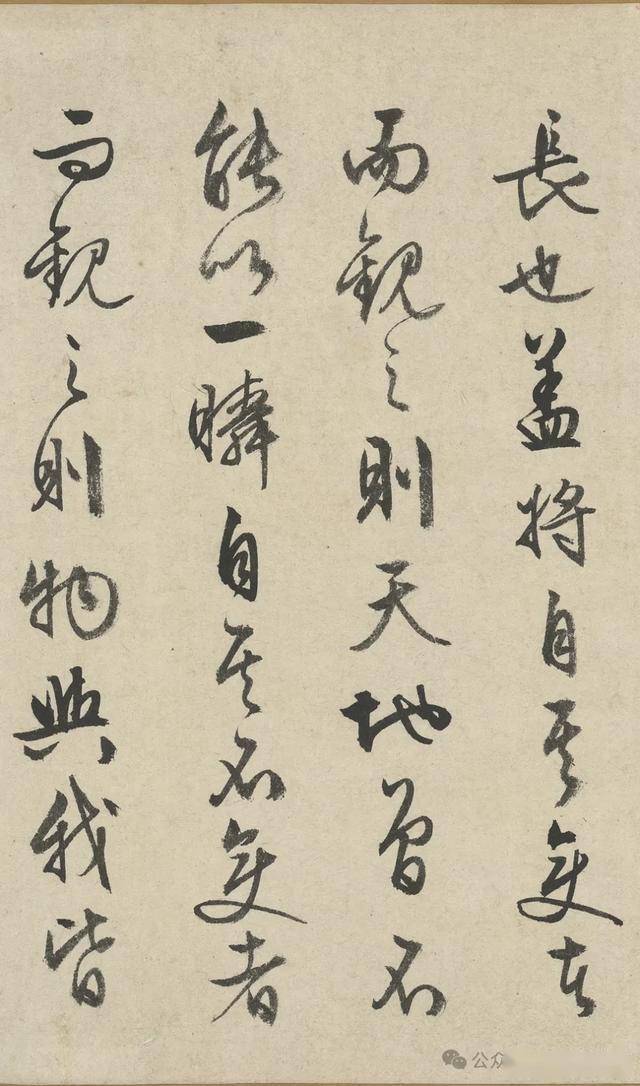 長也盖將自其變者
而觀之則天地曾不
能以一瞬自其不變者
而觀之則物與我皆
公众